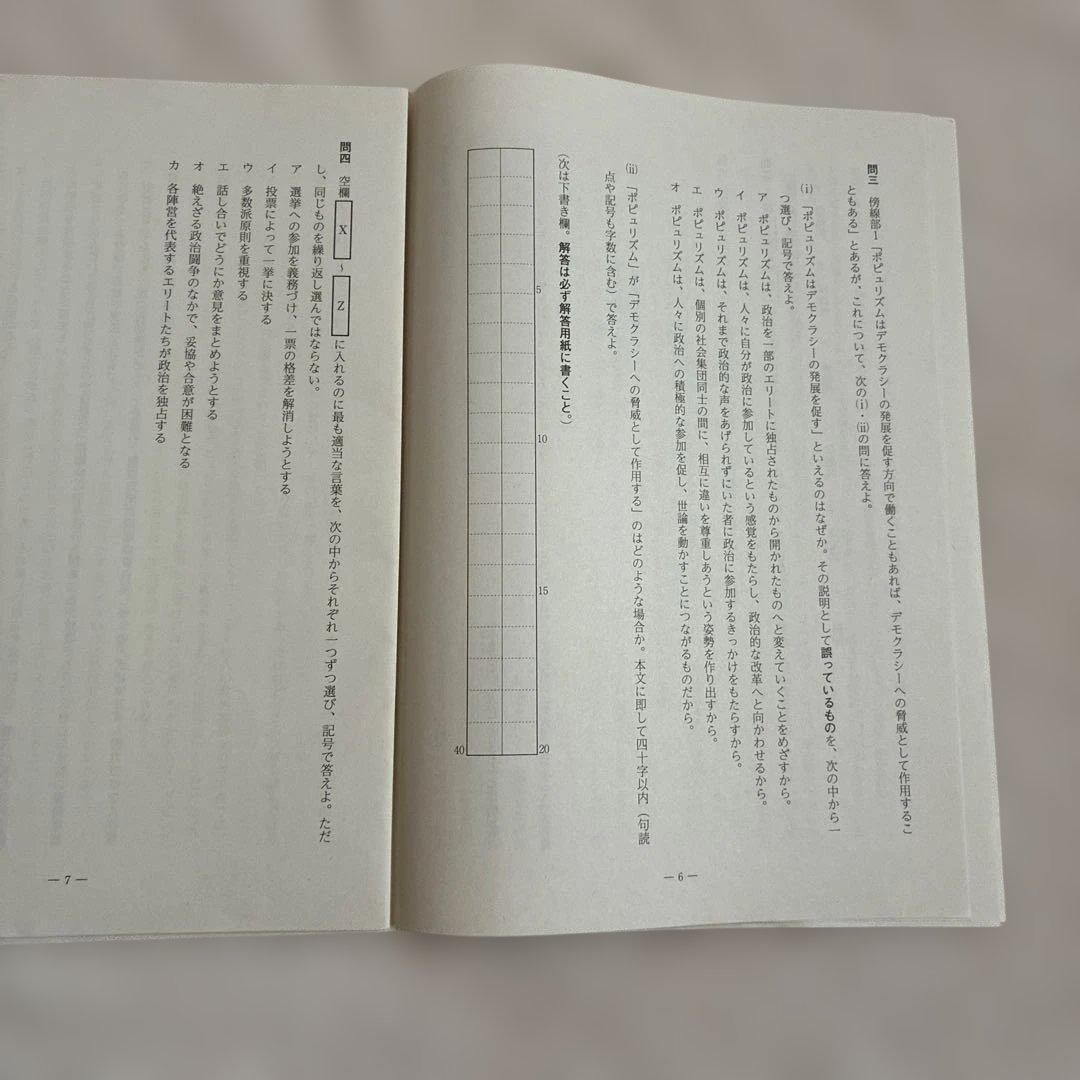 問三 傍線部1「ポピュリズムはデモクラシーの発展を促す方向で働くこともあれば、デモクラシーへの脅威として作用するこ
ともある」とあるが、これについて、次の(i)・(ii)の問に答えよ。
(i) 「ポピュリズムはデモクラシーの発展を促す」といえるのはなぜか。その説明として誤っているものを、次の中から一
つ選び、記号で答えよ。
ア ポピュリズムは、政治を一部のエリートに独占されたものから開かれたものへと変えていくことをめざすから。
イ ポピュリズムは、人々に自分が政治に参加しているという感覚をもたらし、政治的な改革へと向かわせるから。
ウ ポピュリズムは、それまで政治的な声をあげられずにいた者に政治に参加するきっかけをもたらすから。
エ ポピュリズムは、個別の社会集団同士の間に、相互に違いを尊重しあうという姿勢を作り出すから。
オ ポピュリズムは、人々に政治への積極的な参加を促し、世論を動かすことにつながるものだから。
(ii) 「ポピュリズム」が「デモクラシーへの脅威として作用する」のはどのような場合か。本文に即して四十字以内（句読
点や記号も字数に含む）で答えよ。
（次は下書き欄。解答は必ず解答用紙に書くこと。）
5
10
15
20
40
— 6 —
問四 空欄 X ～ Z に入れるのに最も適当な言葉を、次の中からそれぞれ一つずつ選び、記号で答えよ。ただ
し、同じものを繰り返し選んではならない。
ア 選挙への参加を義務づけ、一票の格差を解消しようとする
イ 投票によって一挙に決する
ウ 多数派原則を重視する
エ 話し合いでどうにか意見をまとめようとする
オ 絶えざる政治闘争のなかで、妥協や合意が困難となる
カ 各陣営を代表するエリートたちが政治を独占する
— 7 —